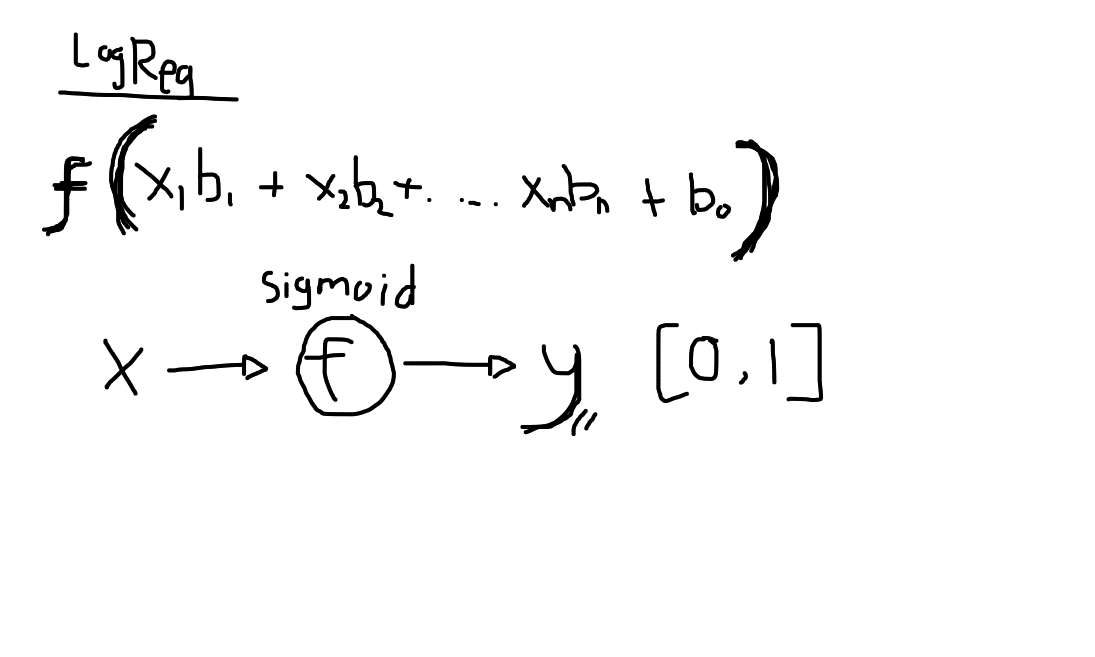 LogReg
f(x₁b₁ + x₂b₂+. ... xₙbₙ + b₀)
sigmoid
x → f → y [0,1]